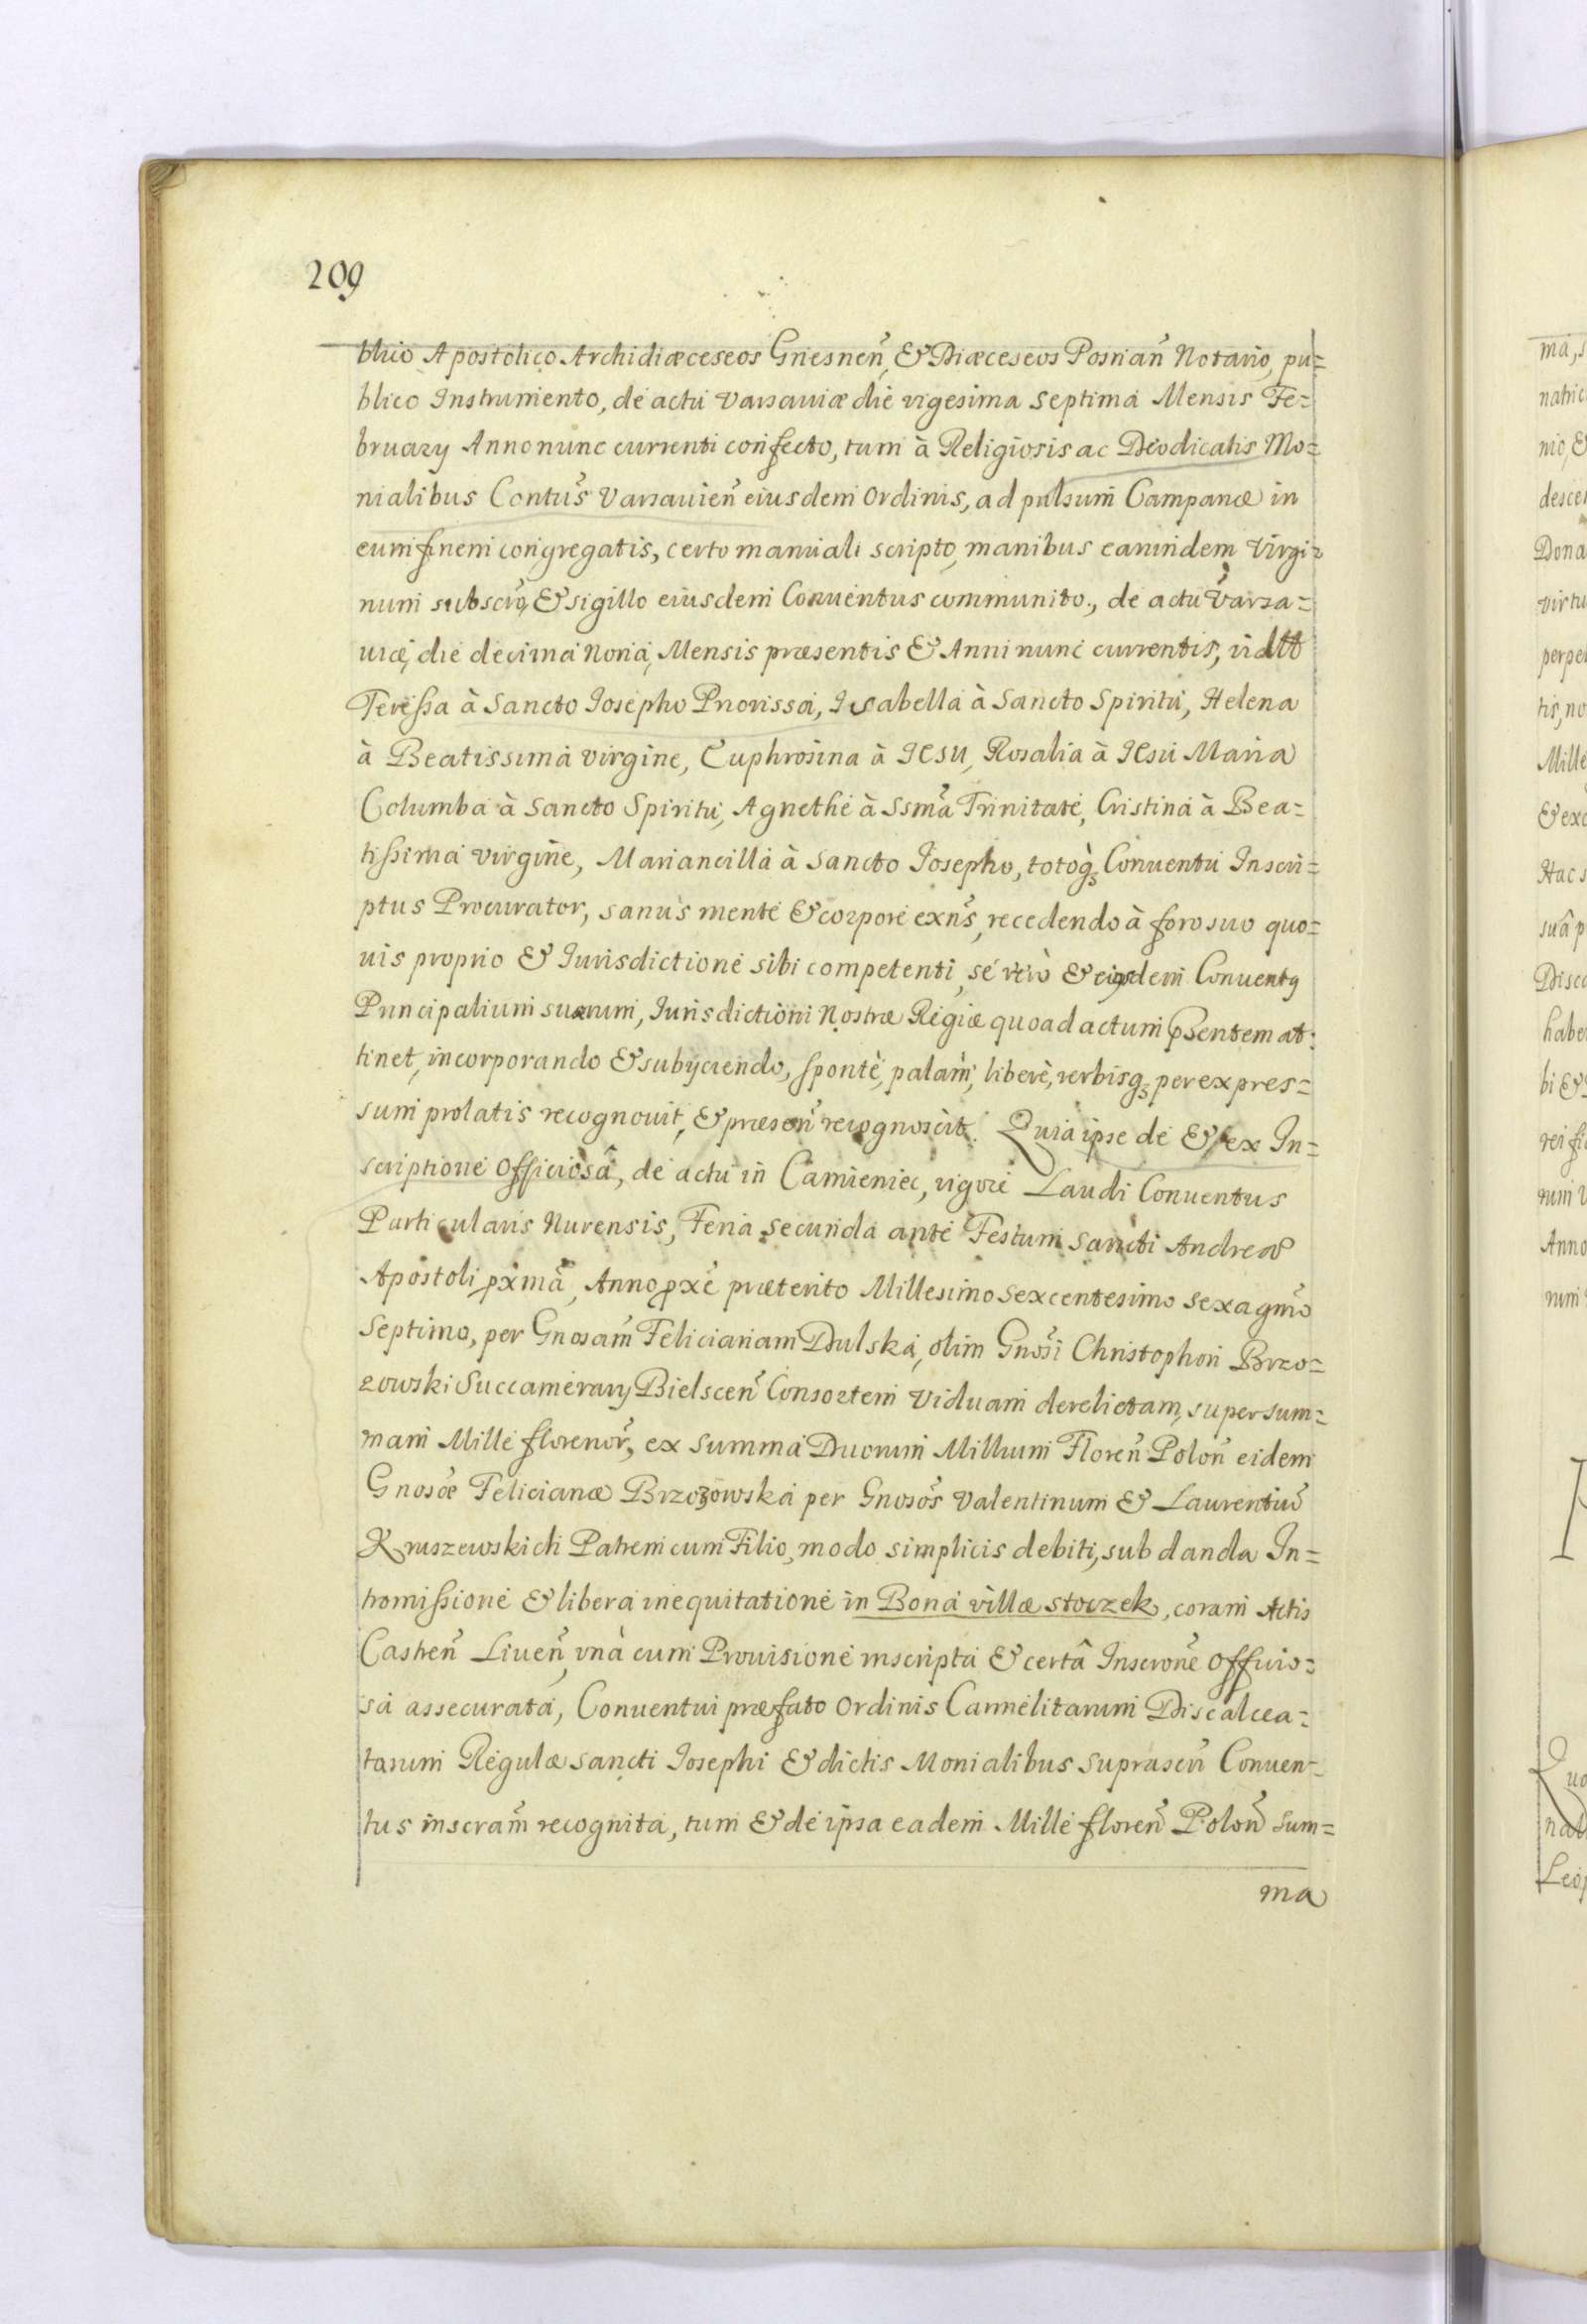 209
blico Apostolico Archidiæceseos Gnesneñ, & Diæceseos Posnañ Notario, pu=
blico Instrumento, de actu Varsauiæ die vigesima septima Mensis Fe=
bruary Anno nunc currenti confecto, tum à Religiosis ac Deodicatis Mo=
nialibus Contus Varsauieñ eiusdem Ordinis, ad pulsum Campanæ in
eum finem congregatis, certo manuali scripto, manibus earundem Virgi=
num subscrip, & sigillo eiusdem Conuentus communito, de actu Varsa=
uiæ, die decima nona, Mensis præsentis & Anni nunc currentis, vidtt
Teressa à Sancto Iosepho Priorissa, Isabella à Sancto Spiritu, Helena
à Beatissima virgine, Euphrosina à IESU, Rosalia à IESu Maria
Columba à Sancto Spiritu, Agnethe à Ssma Trinitate, Cristina à Bea=
tissima virgine, Mariancilla à Sancto Iosepho, totoq Conuentu Inscri=
ptus Procurator, sanus mente & corpore exns, recedendo à foro suo quo=
uis proprio & Iurisdictione sibi competenti, se verò & eiusdem Conuentq
Principalium suarum, Iurisdictioni Nostræ Regiæ quoad actum psentem at=
tinet, incorporando & subijciendo, sponte, palam, libere, verbisq per expres=
sum prolatis recognouit, & præseñ recognoscit. Quia ipse de & ex In=
scriptione Officiosâ, de actu in Camieniec, vigore Laudi Conuentus
Particularis Nurensis, Feria secunda ante Festum Sancti Andreæ
Apostoli pxmâ, Anno pxe præterito Millesimo sexcentesimo sexagmo
Septimo, per Gnosam Felicianam Dulska, olim Gnosi Christophori Brzo=
zowski Succamerary Bielsceñ Consortem Viduam derelictam, super sum=
mam Mille florenor, ex summa Duorum Millium Floreñ Poloñ eidem
Gnosæ Felicianæ Brzozowska per Gnosos Valentinum & Laurentiu
Kruszewskich Patrem cum Filio, modo simplicis debiti, sub danda In=
tromissione & libera inequitatione in Bona villæ stoczek, coram Actis
Castreñ Liueñ, vnà cum Prouisione inscripta & certâ Inscrone Officio=
sa assecurata, Conuentui præfato Ordinis Carmelitarum Discalcea=
tarum Regulæ sancti Iosephi & dictis Monialibus suprascri Conuen=
tus inscram recognita, tum & de ipsa eadem Mille floreñ Poloñ sum=
ma